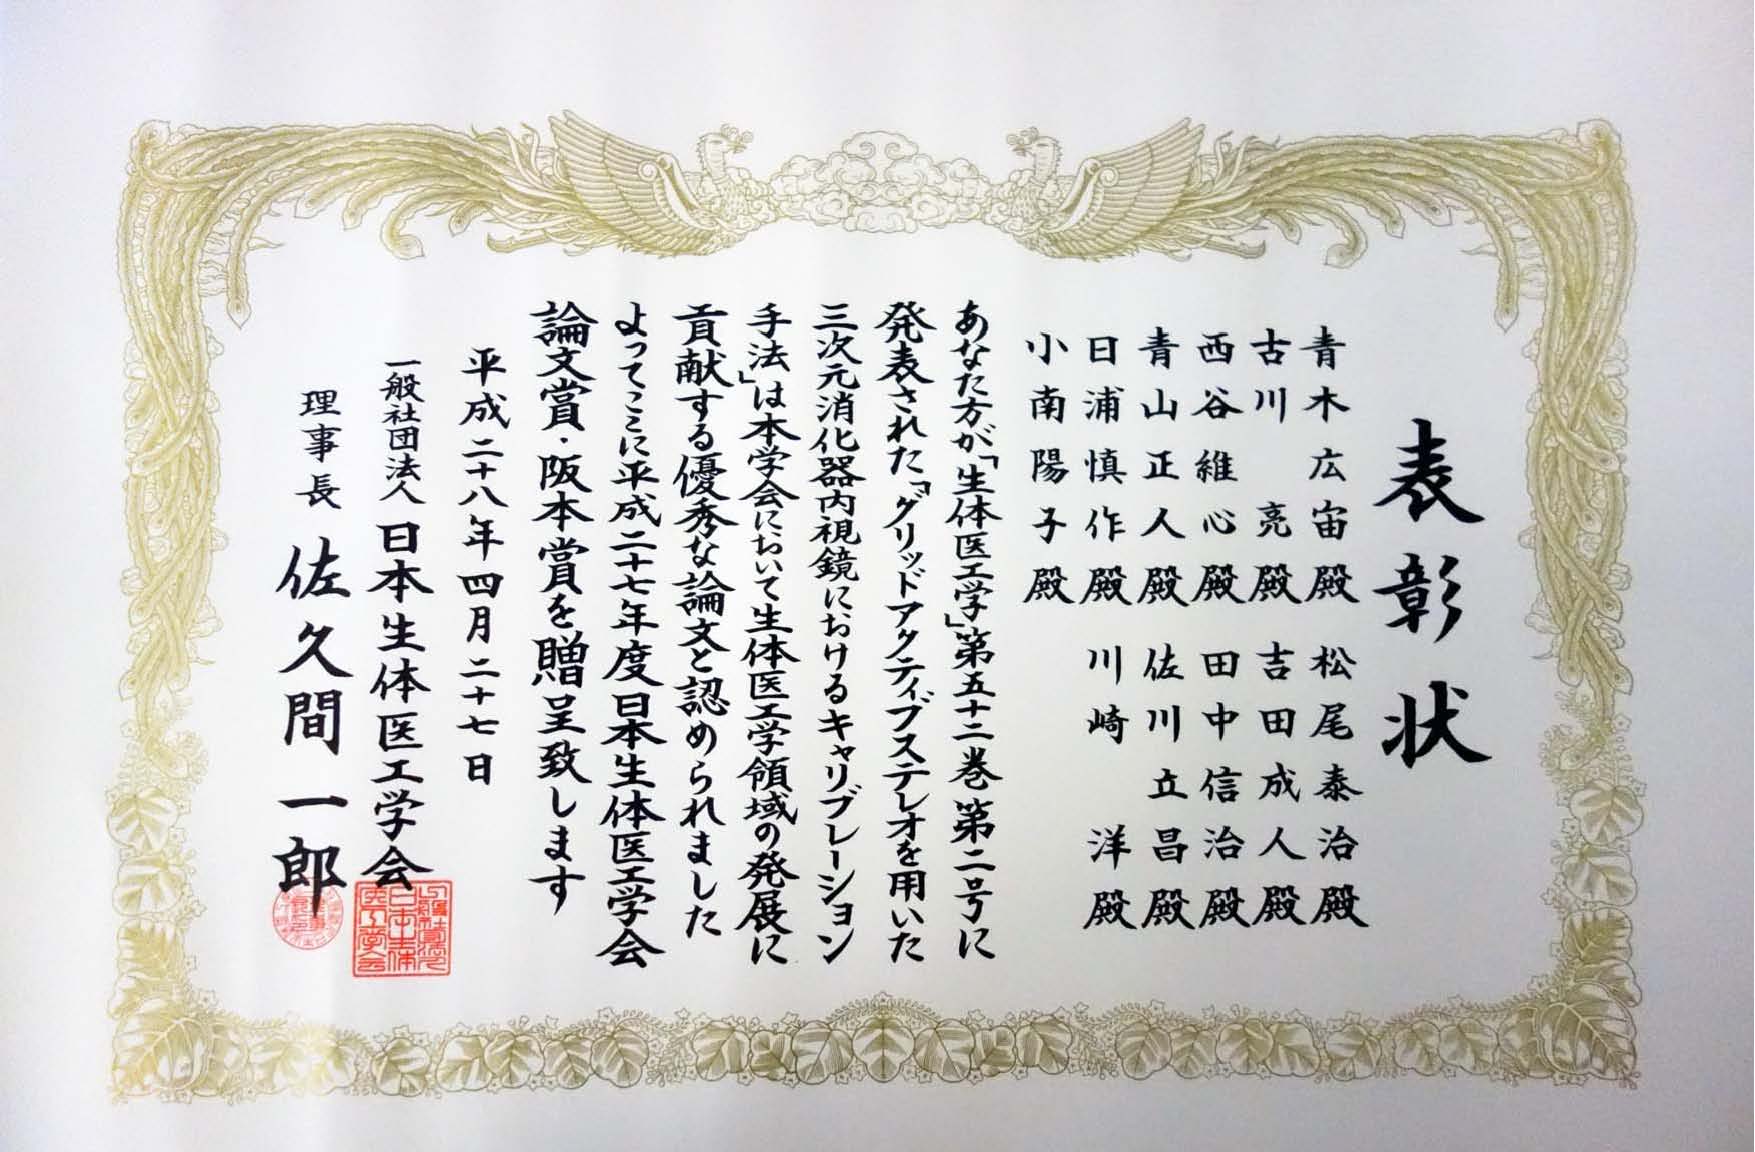 表彰状
青木広宙殿 松尾泰治殿
古川 亮殿 吉田成人殿
西谷維心殿 田中信治殿
青山正人殿 佐川立昌殿
日浦慎作殿 川崎 洋殿
小南陽子殿
あなた方が「生体医工学」第五十二巻第二号に
発表された「グリッドアクティブステレオを用いた
三次元消化器内視鏡におけるキャリブレーション
手法」は本学会において生体医工学領域の発展に
貢献する優秀な論文と認められました
よってここに平成二十七年度日本生体医工学会
論文賞・阪本賞を贈呈致します
平成二十八年四月二十七日
一般社団法人 日本生体医工学会
理事長 佐久間一郎